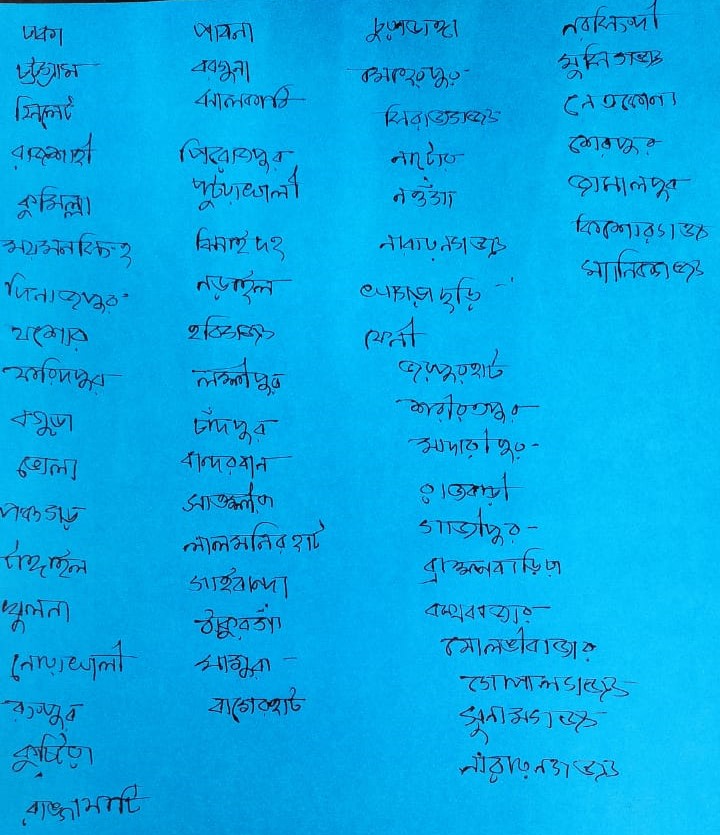 ঢাকা
চট্টগ্রাম
সিলেট
রাজশাহী
কুমিল্লা
ময়মনসিংহ
দিনাজপুর
যশোর
ফরিদপুর
বগুড়া
ভোলা
পঞ্চগড়
টাঙ্গাইল
খুলনা
নোয়াখালী
রংপুর
কুষ্টিয়া
রাঙ্গামাটি
পাবনা
বরগুনা
ঝালকাঠি
পিরোজপুর
পটুয়াখালী
ঝিনাইদহ
নড়াইল
হবিগঞ্জ
লক্ষ্মীপুর
চাঁদপুর
বান্দরবান
সাতক্ষীরা
লালমনিরহাট
গাইবান্ধা
ঠাকুরগাঁ
মাগুরা
বাগেরহাট
চুয়াডাঙ্গা
মেহেরপুর
সিরাজগঞ্জ
নাটোর
নওগাঁ
নারায়নগঞ্জ
খাগড়াছড়ি
ফেনী
জয়পুরহাট
শরীয়তপুর
মাদারীপুর
রাজবাড়ী
গাজীপুর
ব্রাহ্মনবাড়িয়া
কক্সবাজার
মৌলভীবাজার
গোপালগঞ্জ
সুনামগঞ্জ
নারায়নগঞ্জ
নরসিংদী
মুন্সিগঞ্জ
নেত্রকোনা
শেরপুর
জামালপুর
কিশোরগঞ্জ
মানিকগঞ্জ